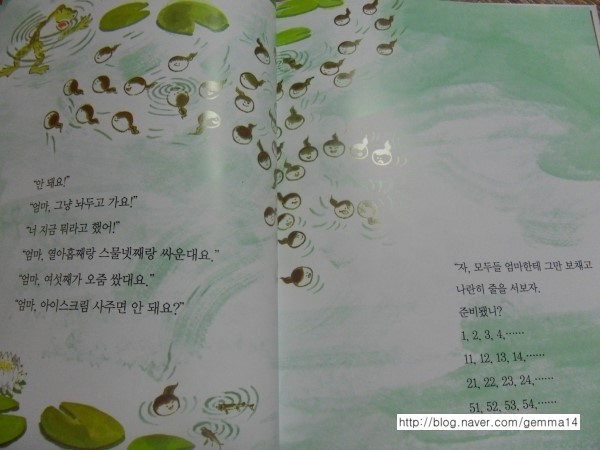 "안 돼요!"
"엄마, 그냥 놔두고 가요!"
"너 지금 뭐라고 했어!"
"엄마, 열아홉째랑 스물넷째랑 싸운대요."
"엄마, 여섯째가 오줌 쌌대요."
"엄마, 아이스크림 사주면 안 돼요?"
"자, 모두들 엄마한테 그만 보채고
나란히 줄을 서보자.
준비됐니?
1, 2, 3, 4,……
11, 12, 13, 14,……
21, 22, 23, 24,……
51, 52, 53, 54,……
http://blog.naver.com/gemma14